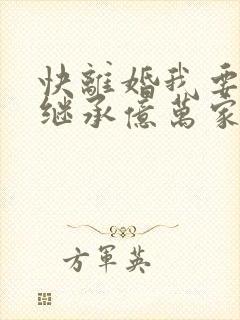 快離婚我要
继承億萬家
方軍英